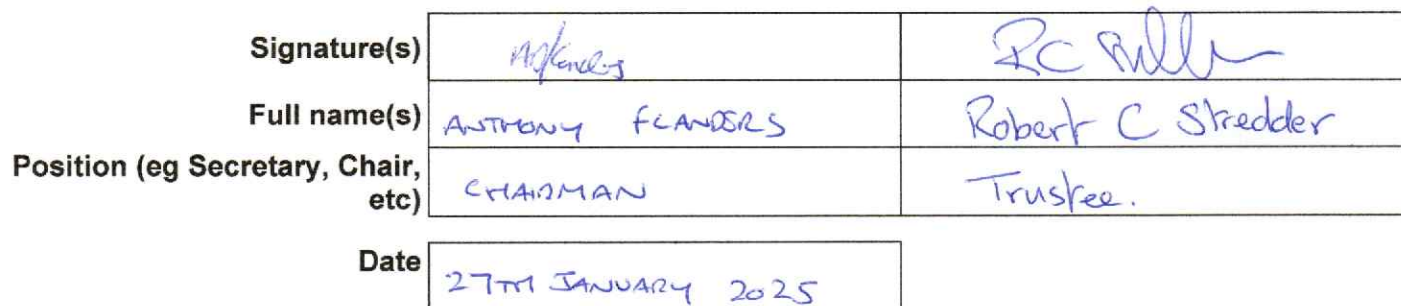 Signature(s)
Full name(s) ANTHONY FLANDERS Robert C Stredder
Position (eg Secretary, Chair,
etc) CHAIRMAN Trustee.
Date 27TH JANUARY 2025